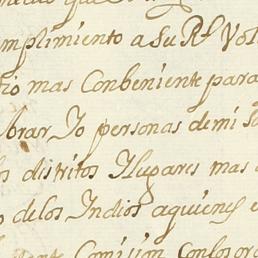 mplimiento a Su Rl Vol
tio mas Combeniente para
brar Io personas de mi s
os distritos Ylugares mas
o delos Indios aquienes e
Comision conlos ord